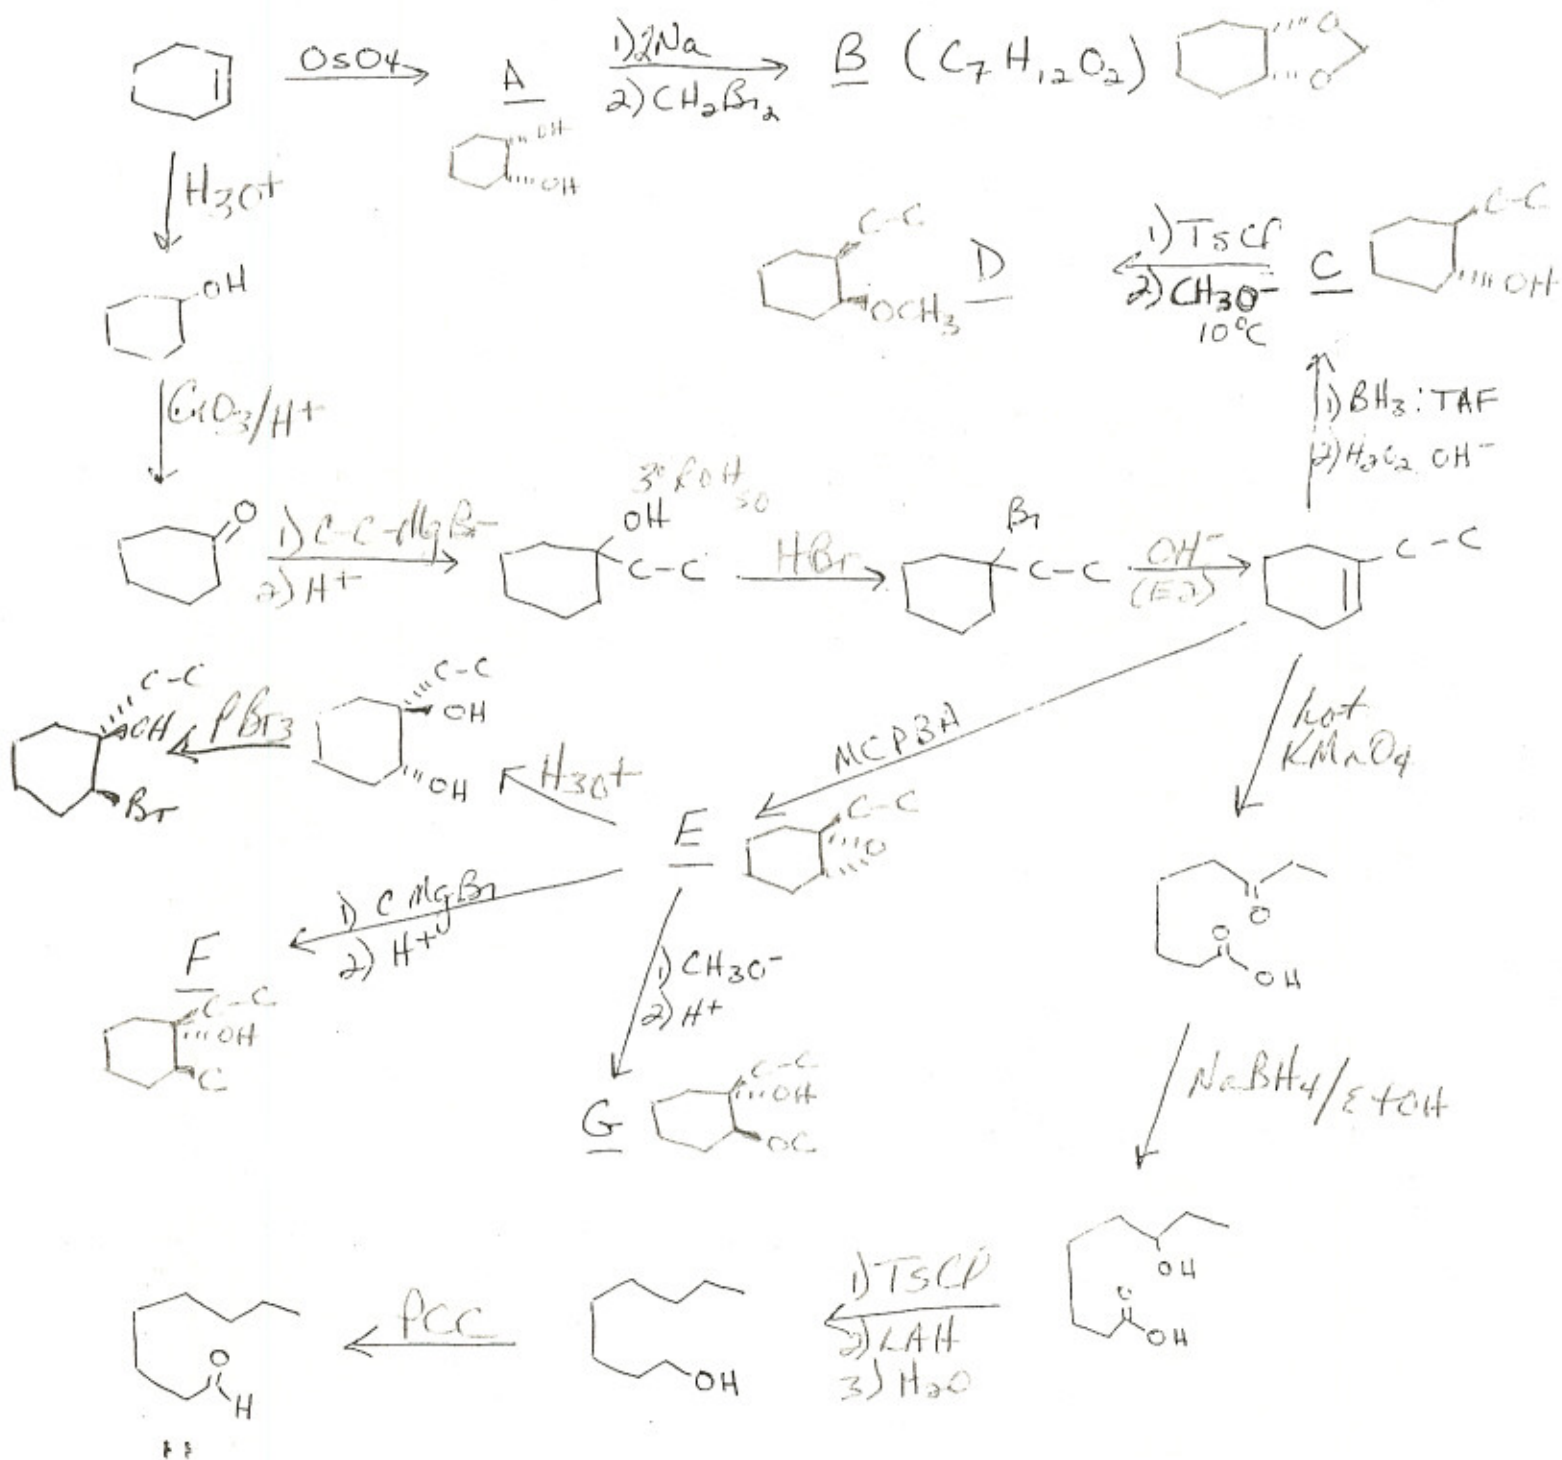 OsO4
A
1) 2Na
2) CH2Br2
B (C7H12O2)
O
O
OH
OH
H3O+
C-C
D
OCH3
1) TsCl
2) CH3O-
10°C
C
C-C
OH
OH
CrO3/H+
1) BH3:TAF
2) H2O2 OH-
O
1) C-C-MgBr
2) H+
3° ROH
SO
OH
C-C
HBr
Br
C-C
OH-
(E2)
C-C
C-C
OH
Br
PBr3
C-C
OH
OH
H3O+
MCPBA
hot
KMnO4
E
C-C
O
1) CMgBr
2) H+
F
C-C
OH
C
1) CH3O-
2) H+
G
C-C
OH
OC
O
O
OH
NaBH4/EtOH
OH
O
OH
1) TsCl
2) LAH
3) H2O
OH
PCC
O
H